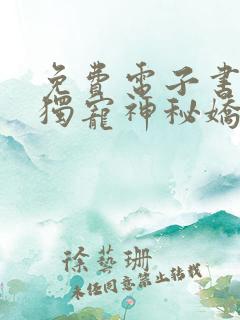 免費電子書
獨寵神秘嬌
徐藝珊
未经同意禁止转载